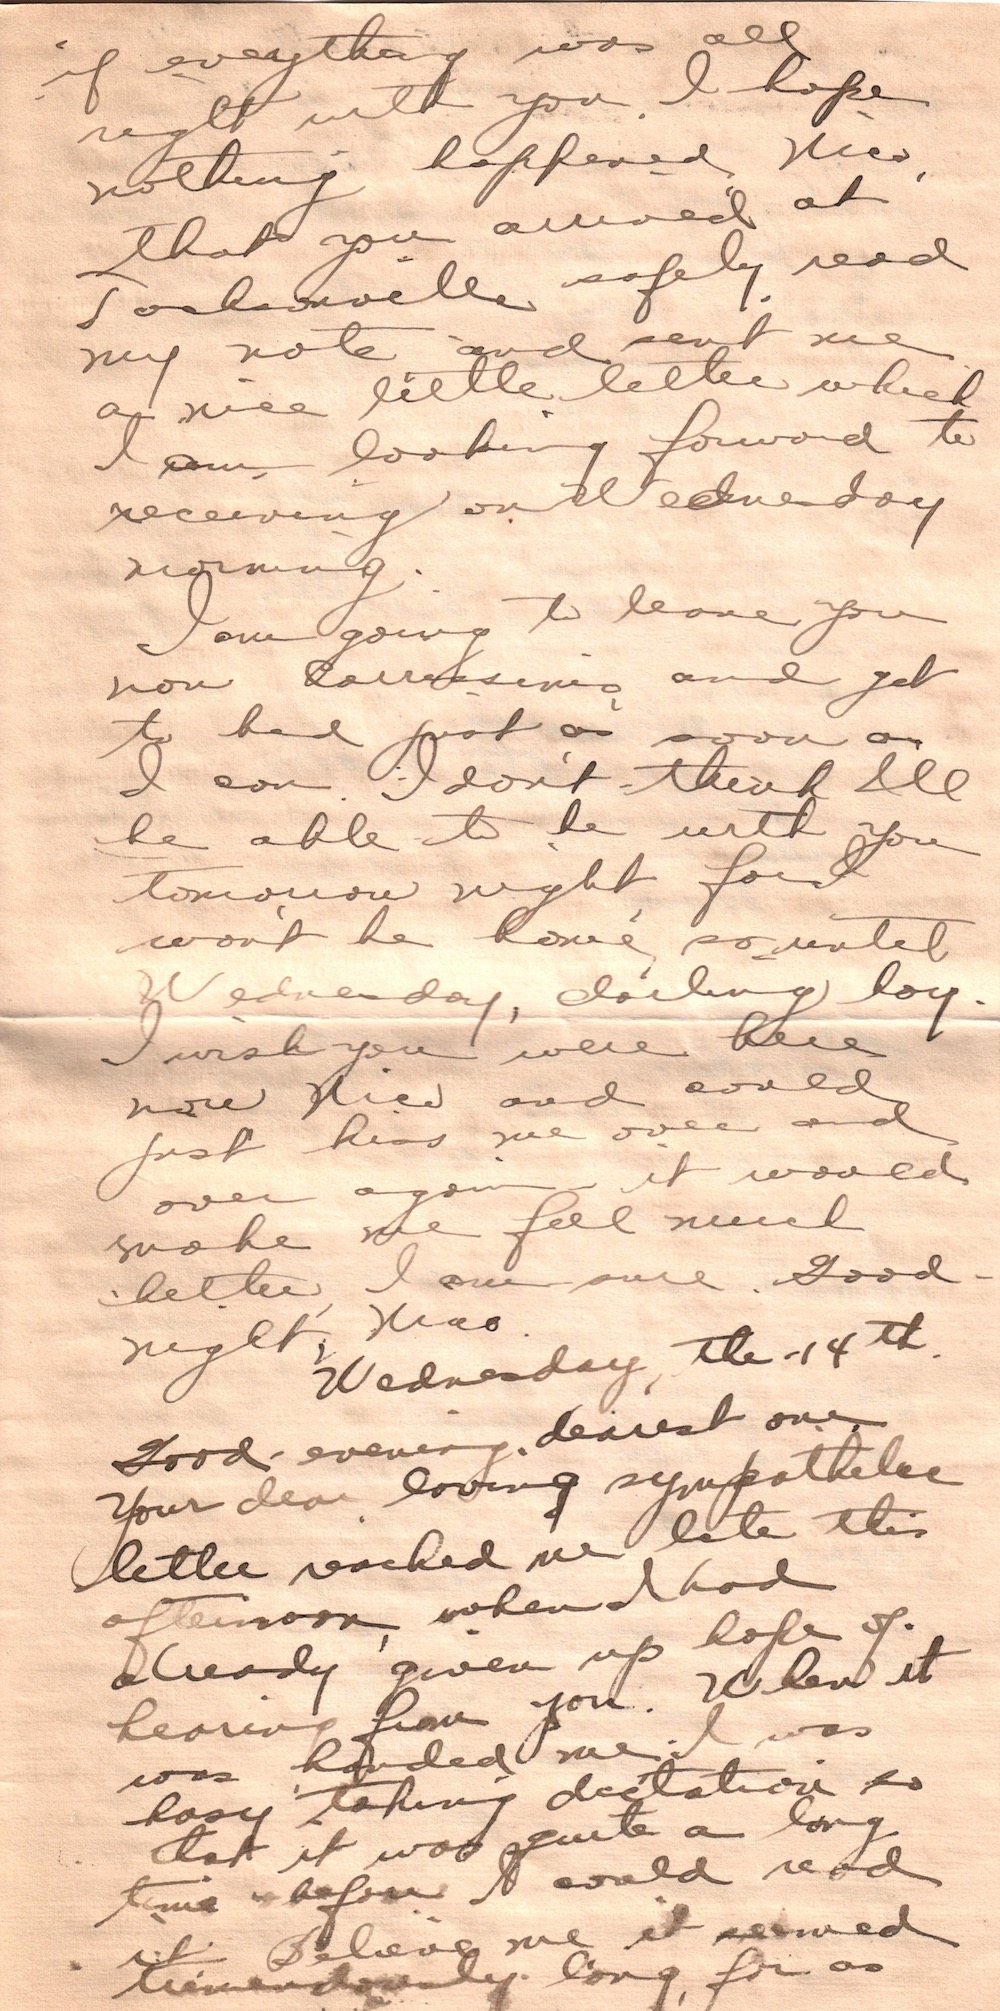 if everything was all
right with you. I hope
nothing happened, Nico,
that you arrived at
Jacksonville safely, read
my note and sent me
a nice little letter which
I am looking forward to
receiving on Wednesday
morning.
I am going to leave you
now and get
to bed just as soon as
I can. I don't think I'll
be able to be with you
tomorrow night, for I
won't be home, so until
Wednesday, darling boy.
I wish you were here
now Nico and could
just kiss me over and
over again - it would
make me feel much
better, I am sure. Good-
night, Nico.
Wednesday, the 14th.
Good-evening, dearest one,
Your dear loving sympathetic
letter reached me late this
afternoon, when I had
already given up hope of
hearing from you. When it
was handed me I was
busy taking dictation so
that it was quite a long
time before I could read
it. Believe me it seemed
tremendously long, for as